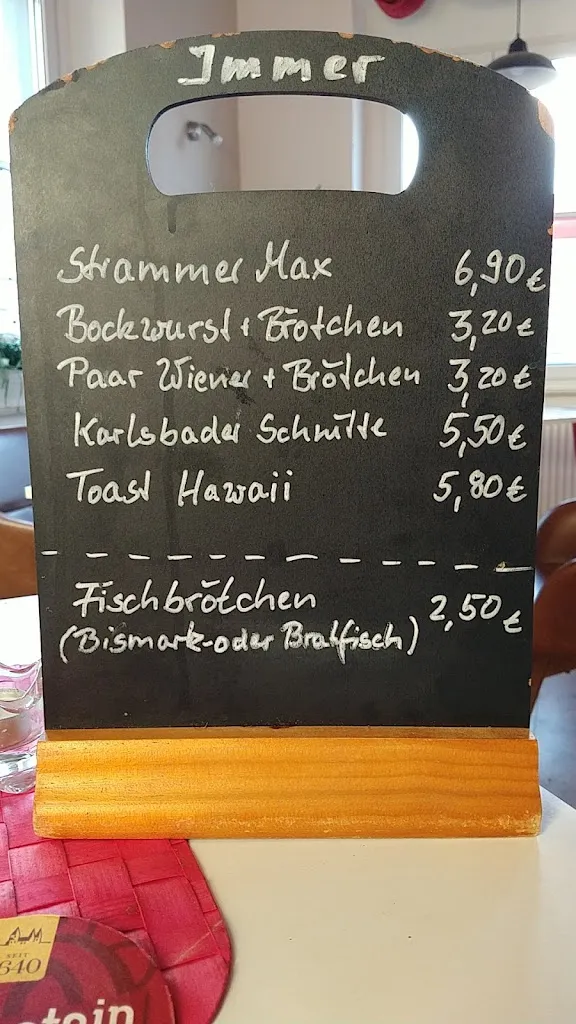 Immer
Strammer Max 6,90€
Bockwurst + Brötchen 3,20€
Paar Wiener + Brötchen 3,20€
Karlsbader Schnitte 5,50€
Toast Hawaii 5,80€
Fischbrötchen 2,50€
(Bismark-oder Bratfisch)
SEIT
640